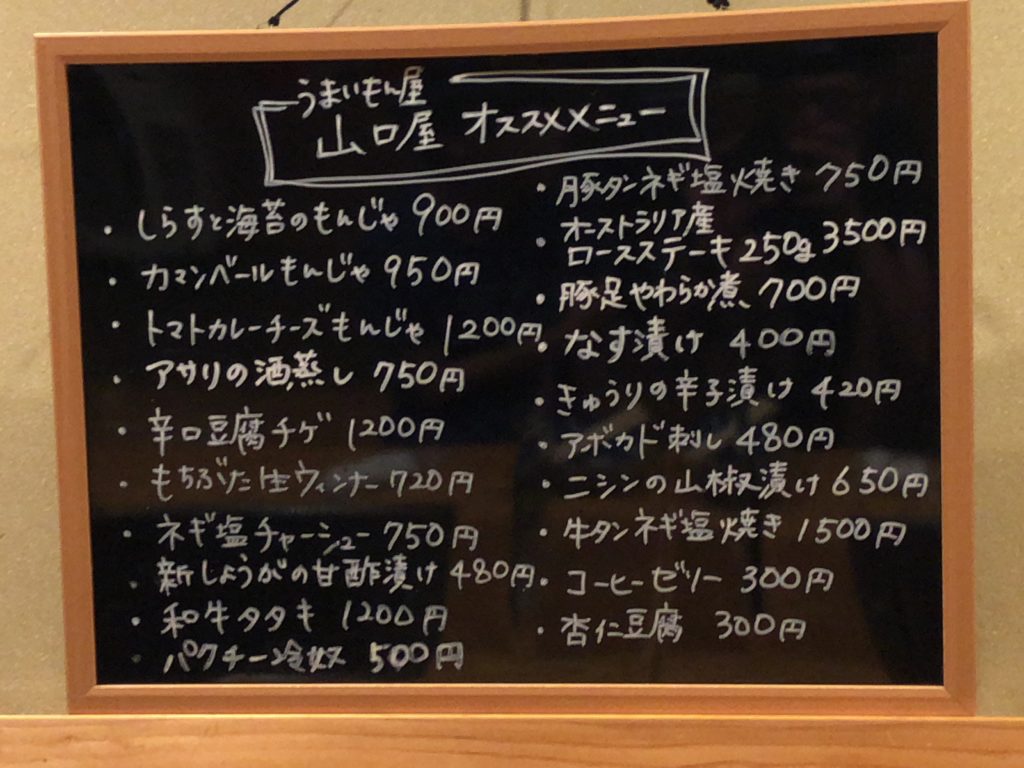 うまいもん屋
山口屋 オススメメニュー
・しらすと海苔のもんじゃ 900円
・カマンベールもんじゃ 950円
・トマトカレーチーズもんじゃ 1200円
・アサリの酒蒸し 750円
・辛口豆腐チゲ 1200円
・もちぶた生ウィンナー 720円
・ネギ塩チャーシュー 750円
・新しょうがの甘酢漬け 480円
・和牛タタキ 1200円
・パクチー冷奴 500円
・豚タンネギ塩焼き 750円
・オーストラリア産
ロースステーキ 250g 3500円
・豚足やわらか煮 700円
・なす漬け 400円
・きゅうりの辛子漬け 420円
・アボカド刺し 480円
・ニシンの山椒漬け 650円
・牛タンネギ塩焼き 1500円
・コーヒーゼリー 300円
・杏仁豆腐 300円